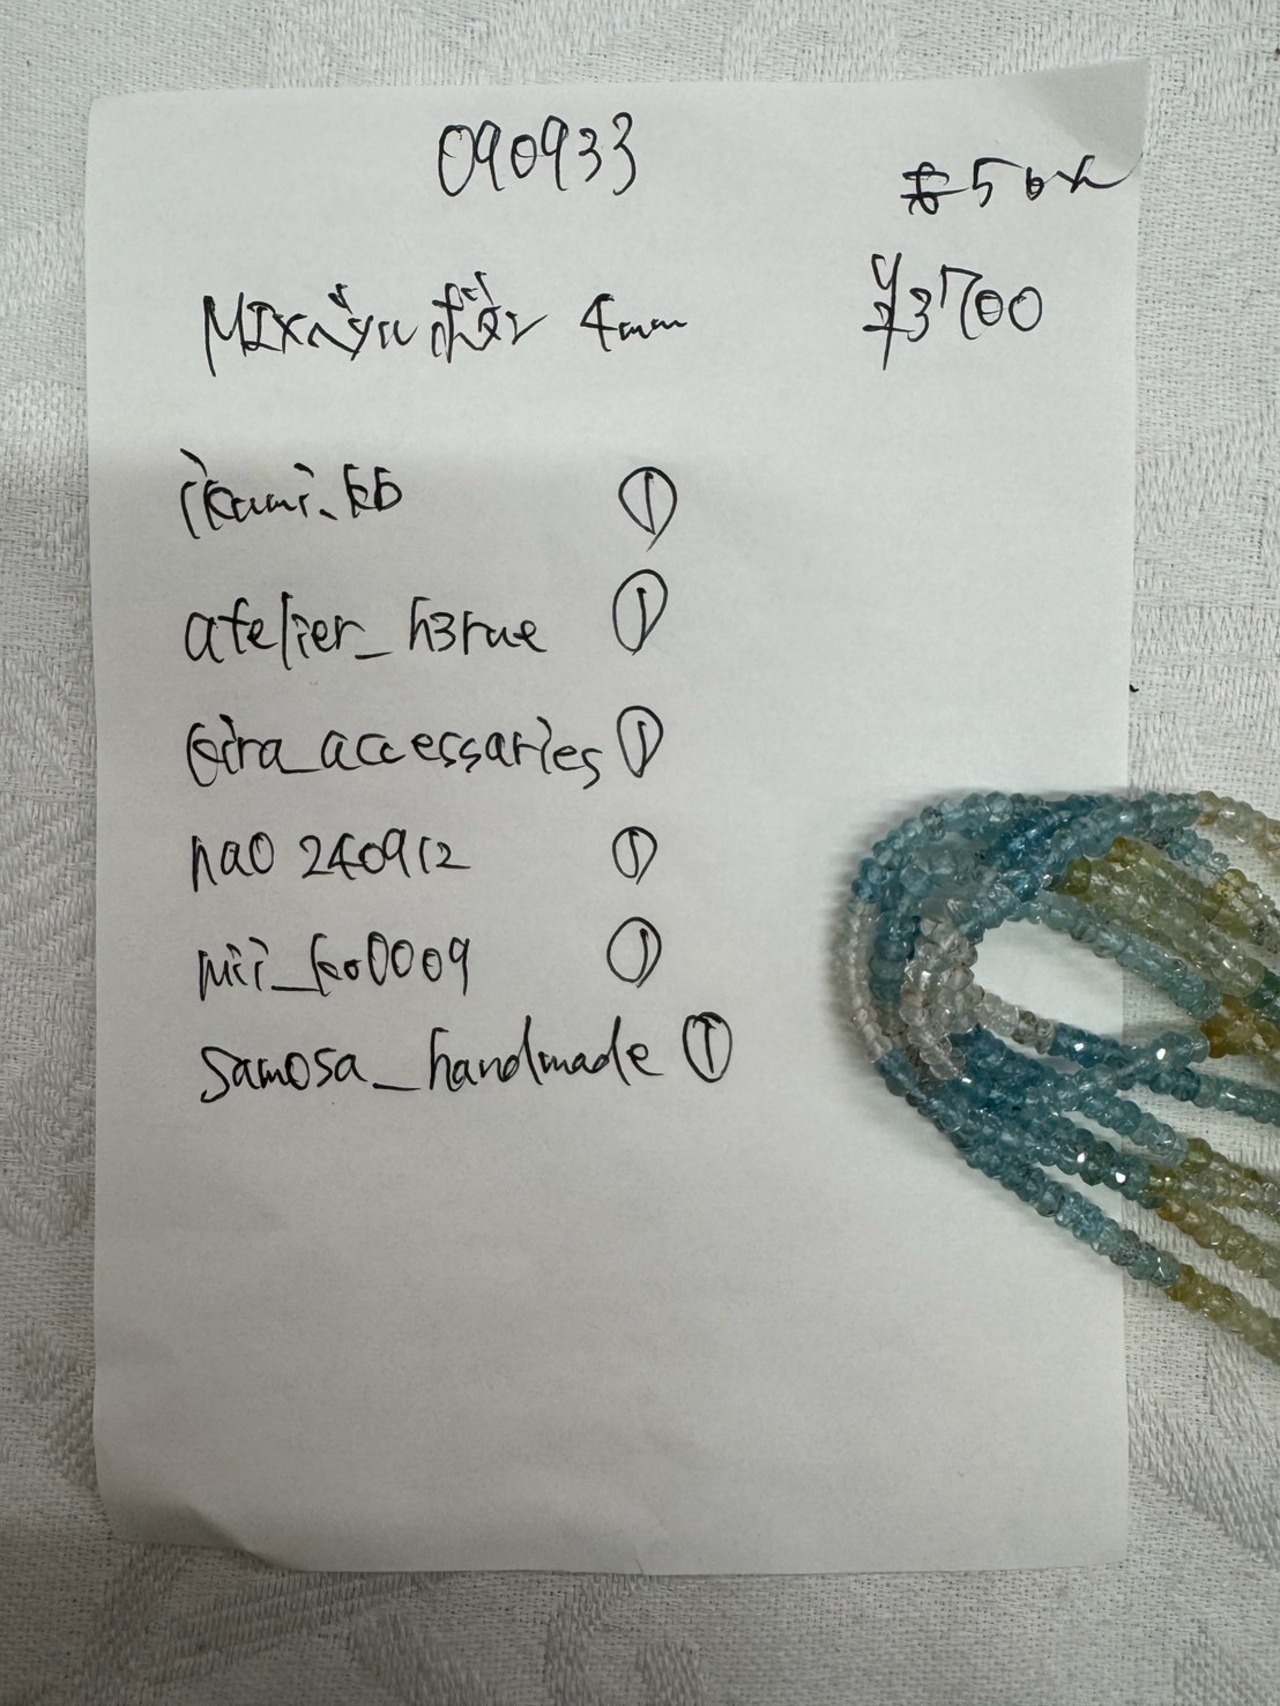 090933
¥3700
MIXベリル ボタン 4mm
ikumi_kb ①
atelier_h3rue ①
kira_accessaries ①
nao 240912 ①
mii_ko0009 ①
samosa_handmade ①